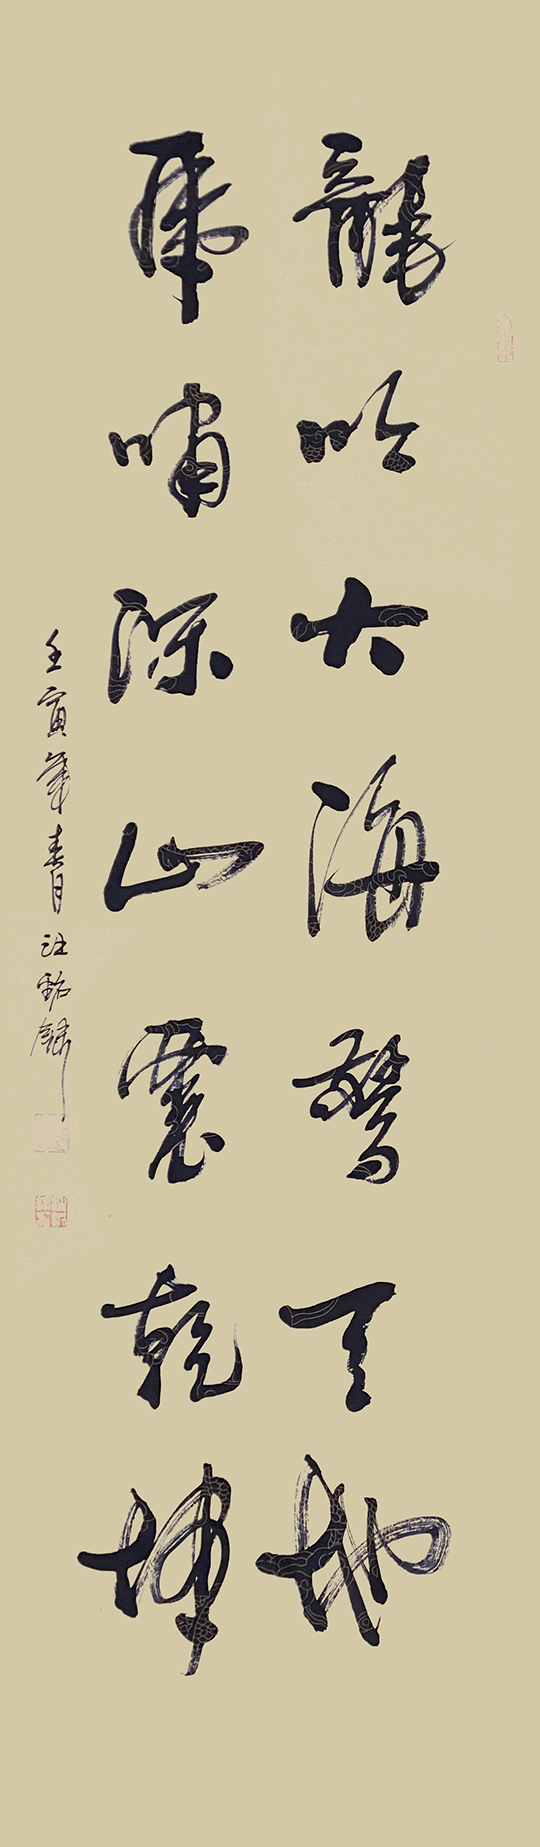 龍吟大海驚天地
虎嘯深山震乾坤
壬寅年春月 汪